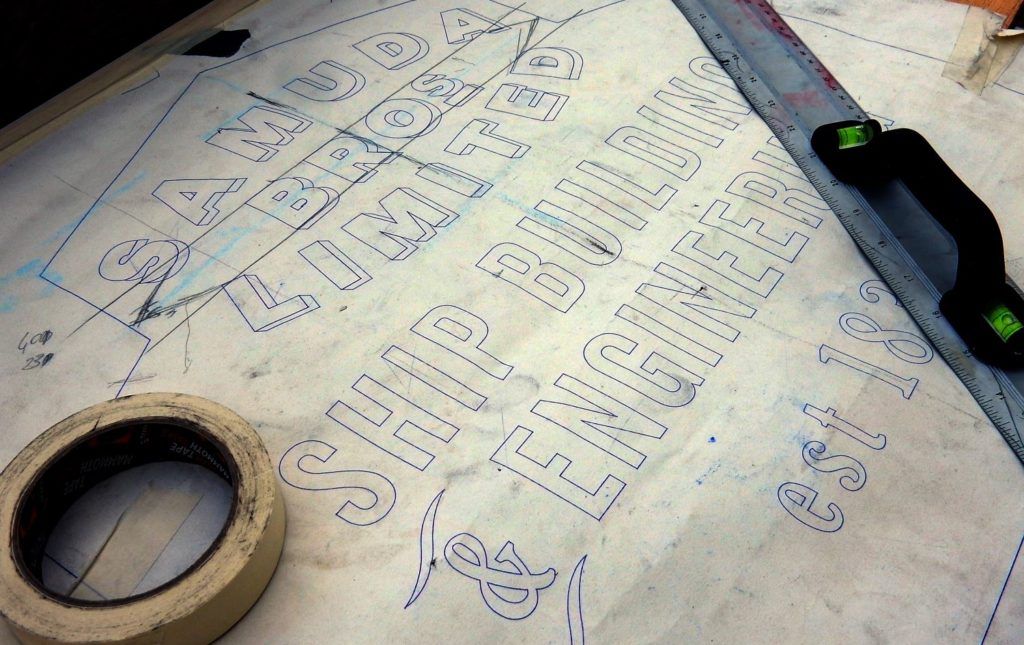 SAMUDA
BROS
LIMITED
SHIP BUILDING
&
ENGINEER
est 182
MAMMOTH
TAPE
MAMMOTH
TAPE